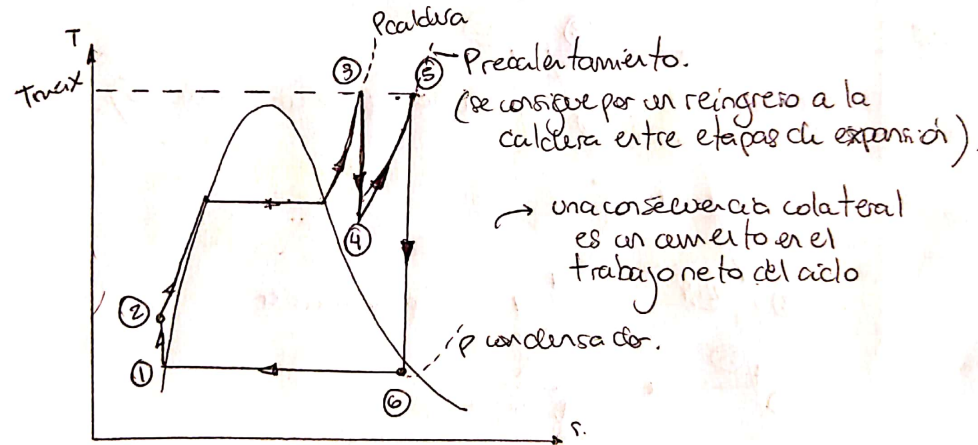 Pcaldera
T
③
⑤
Precalentamiento.
Tmax
(se consigue por un reingreso a la
caldera entre etapas de expansión).
④
→ una consecuencia colateral
es un aumento en el
trabajo neto del ciclo
②
P condensador.
①
⑥
s.